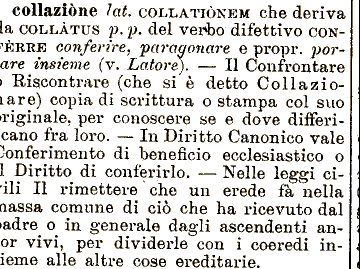 collazióne lat. COLLATIÓNEM che deriva
da COLLÀTUS p. p. del verbo difettivo CON-
FÈRRE conferire, paragonare e propr. por-
are insieme (v. Latore). — Il Confrontare
o Riscontrare (che si è detto Collazio-
nare) copia di scrittura o stampa col suo
originale, per conoscere se e dove differi-
cano fra loro. — In Diritto Canonico vale
Conferimento di beneficio ecclesiastico o
l Diritto di conferirlo. — Nelle leggi ci-
vili Il rimettere che un erede fà nella
massa comune di ciò che ha ricevuto dal
padre o in generale dagli ascendenti an-
or vivi, per dividerle con i coeredi in-
sieme alle altre cose ereditarie.